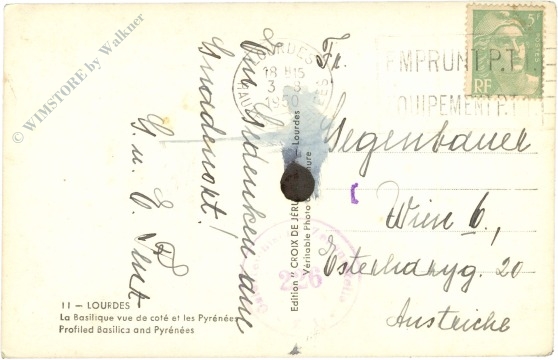 © WIMSTORE by Walkner
LOURDES
18 H15
3 - 8
1950
5F
RF
EMPRUNT P.T.
QUIPEMENT P.T
Fr.
Gegenbauer
Wien 6,
Esterhazyg. 20
Austriche
Ein Gedenken aus
Gnadenort!
G. u. E.
Edition "CROIX DE JÉRU — Lourdes
Véritable Photo
226
11 — LOURDES
La Basilique vue de coté et les Pyrénées
Profiled Basilica and Pyrénées